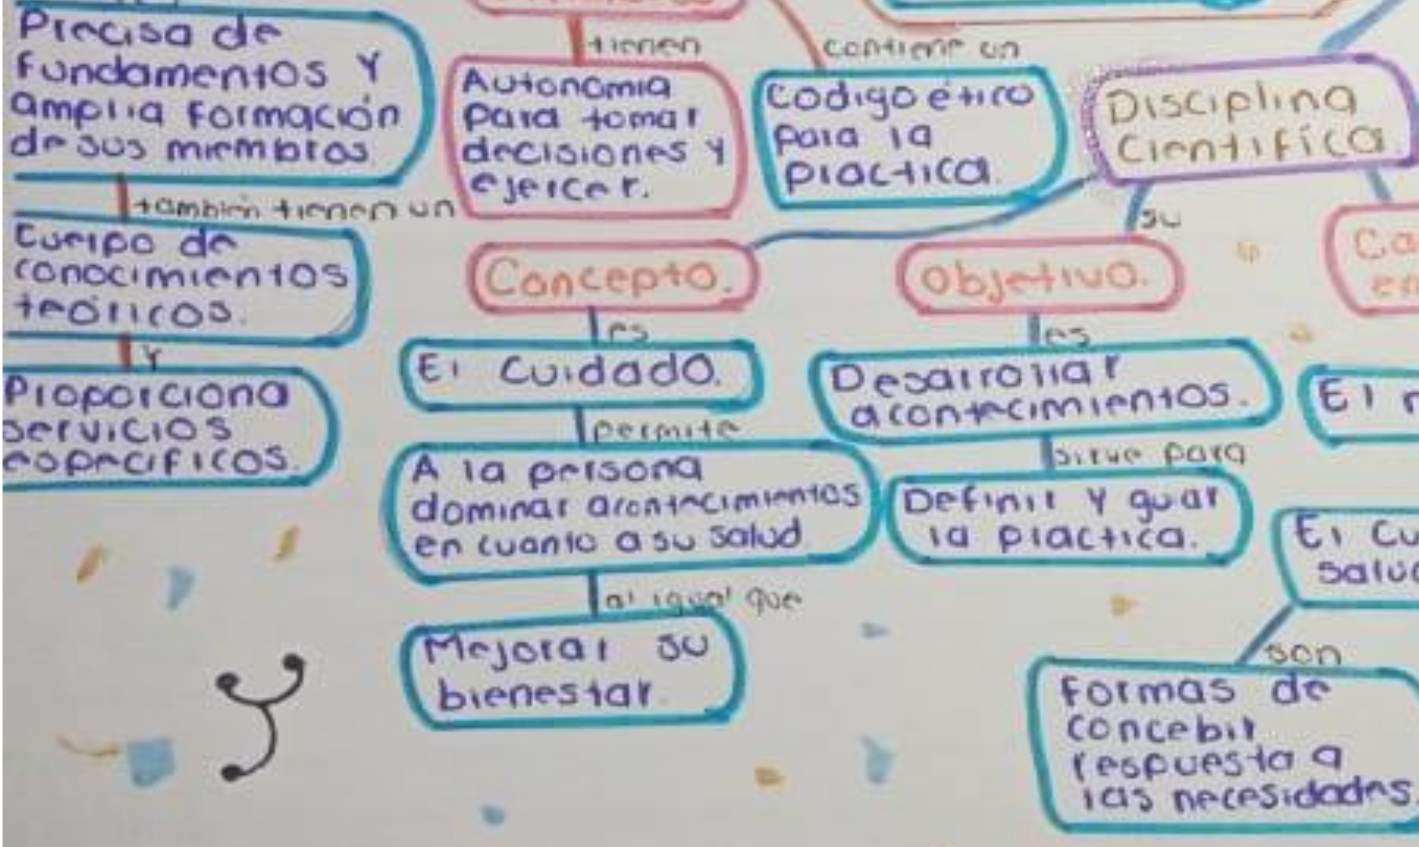 Precisa de
fundamentos y
amplia formación
de sus miembros
también tienen un
Cuerpo de
conocimientos
teóricos.
y
Proporciona
servicios
especificos.
tienen
Autonomia
para tomar
decisiones y
ejercer.
contiene un
Codigo ético
para la
practica.
Disciplina
Científica.
Concepto.
es
El Cuidado.
permite
A la persona
dominar acontecimientos
en cuanto a su salud
al igual que
Mejorar su
bienestar.
su
Objetivo.
es
Desarrollar
acontecimientos.
sirve para
Definir y guar
la practica.
Ca
en
El
El Cu
salud
son
Formas de
concebir
respuesta a
las necesidades.